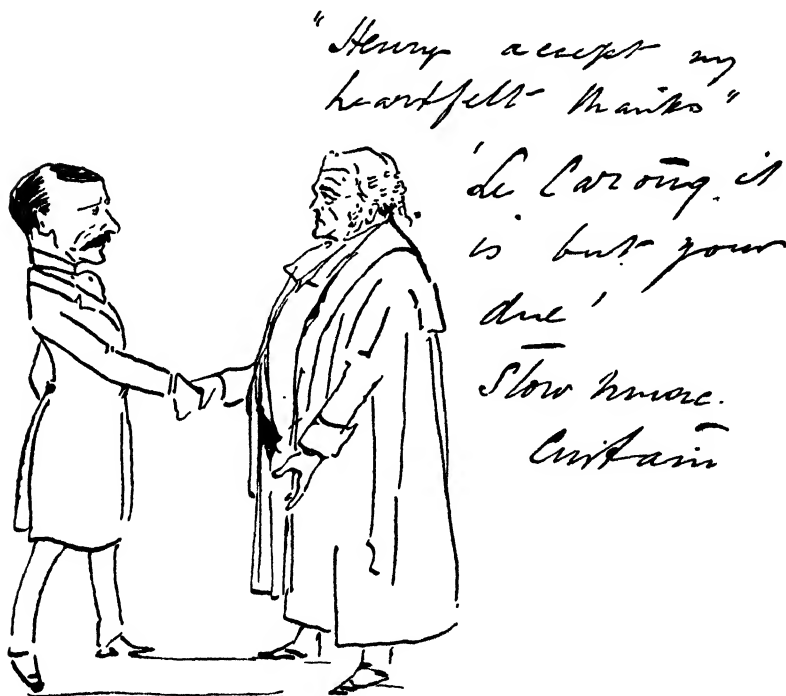 "Henry accept my
heartfelt thanks"
'Le Carong, it
is but your
due'
Slow music.
Curtain